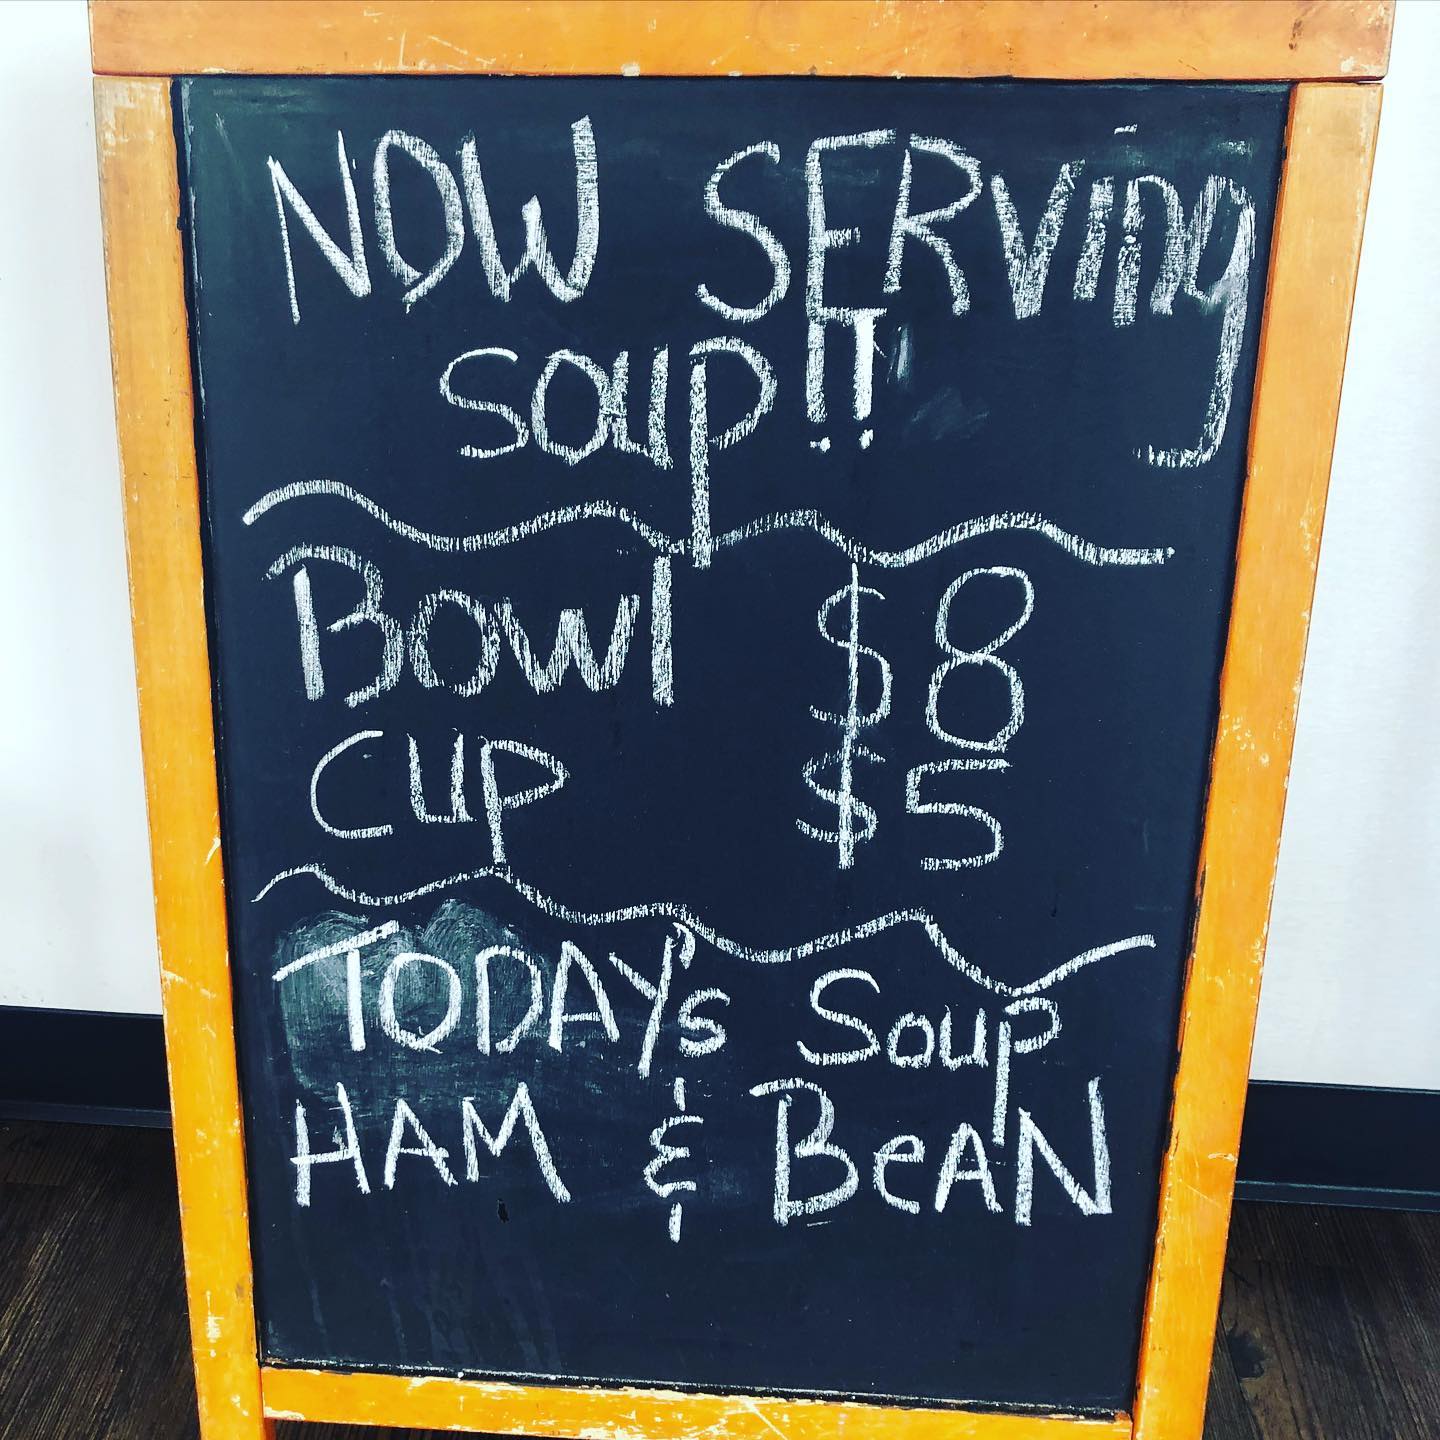 NOW SERVing
SOUP!!
BOWl $8
CUP $5
TODAY's Soup
HAM & BeAN